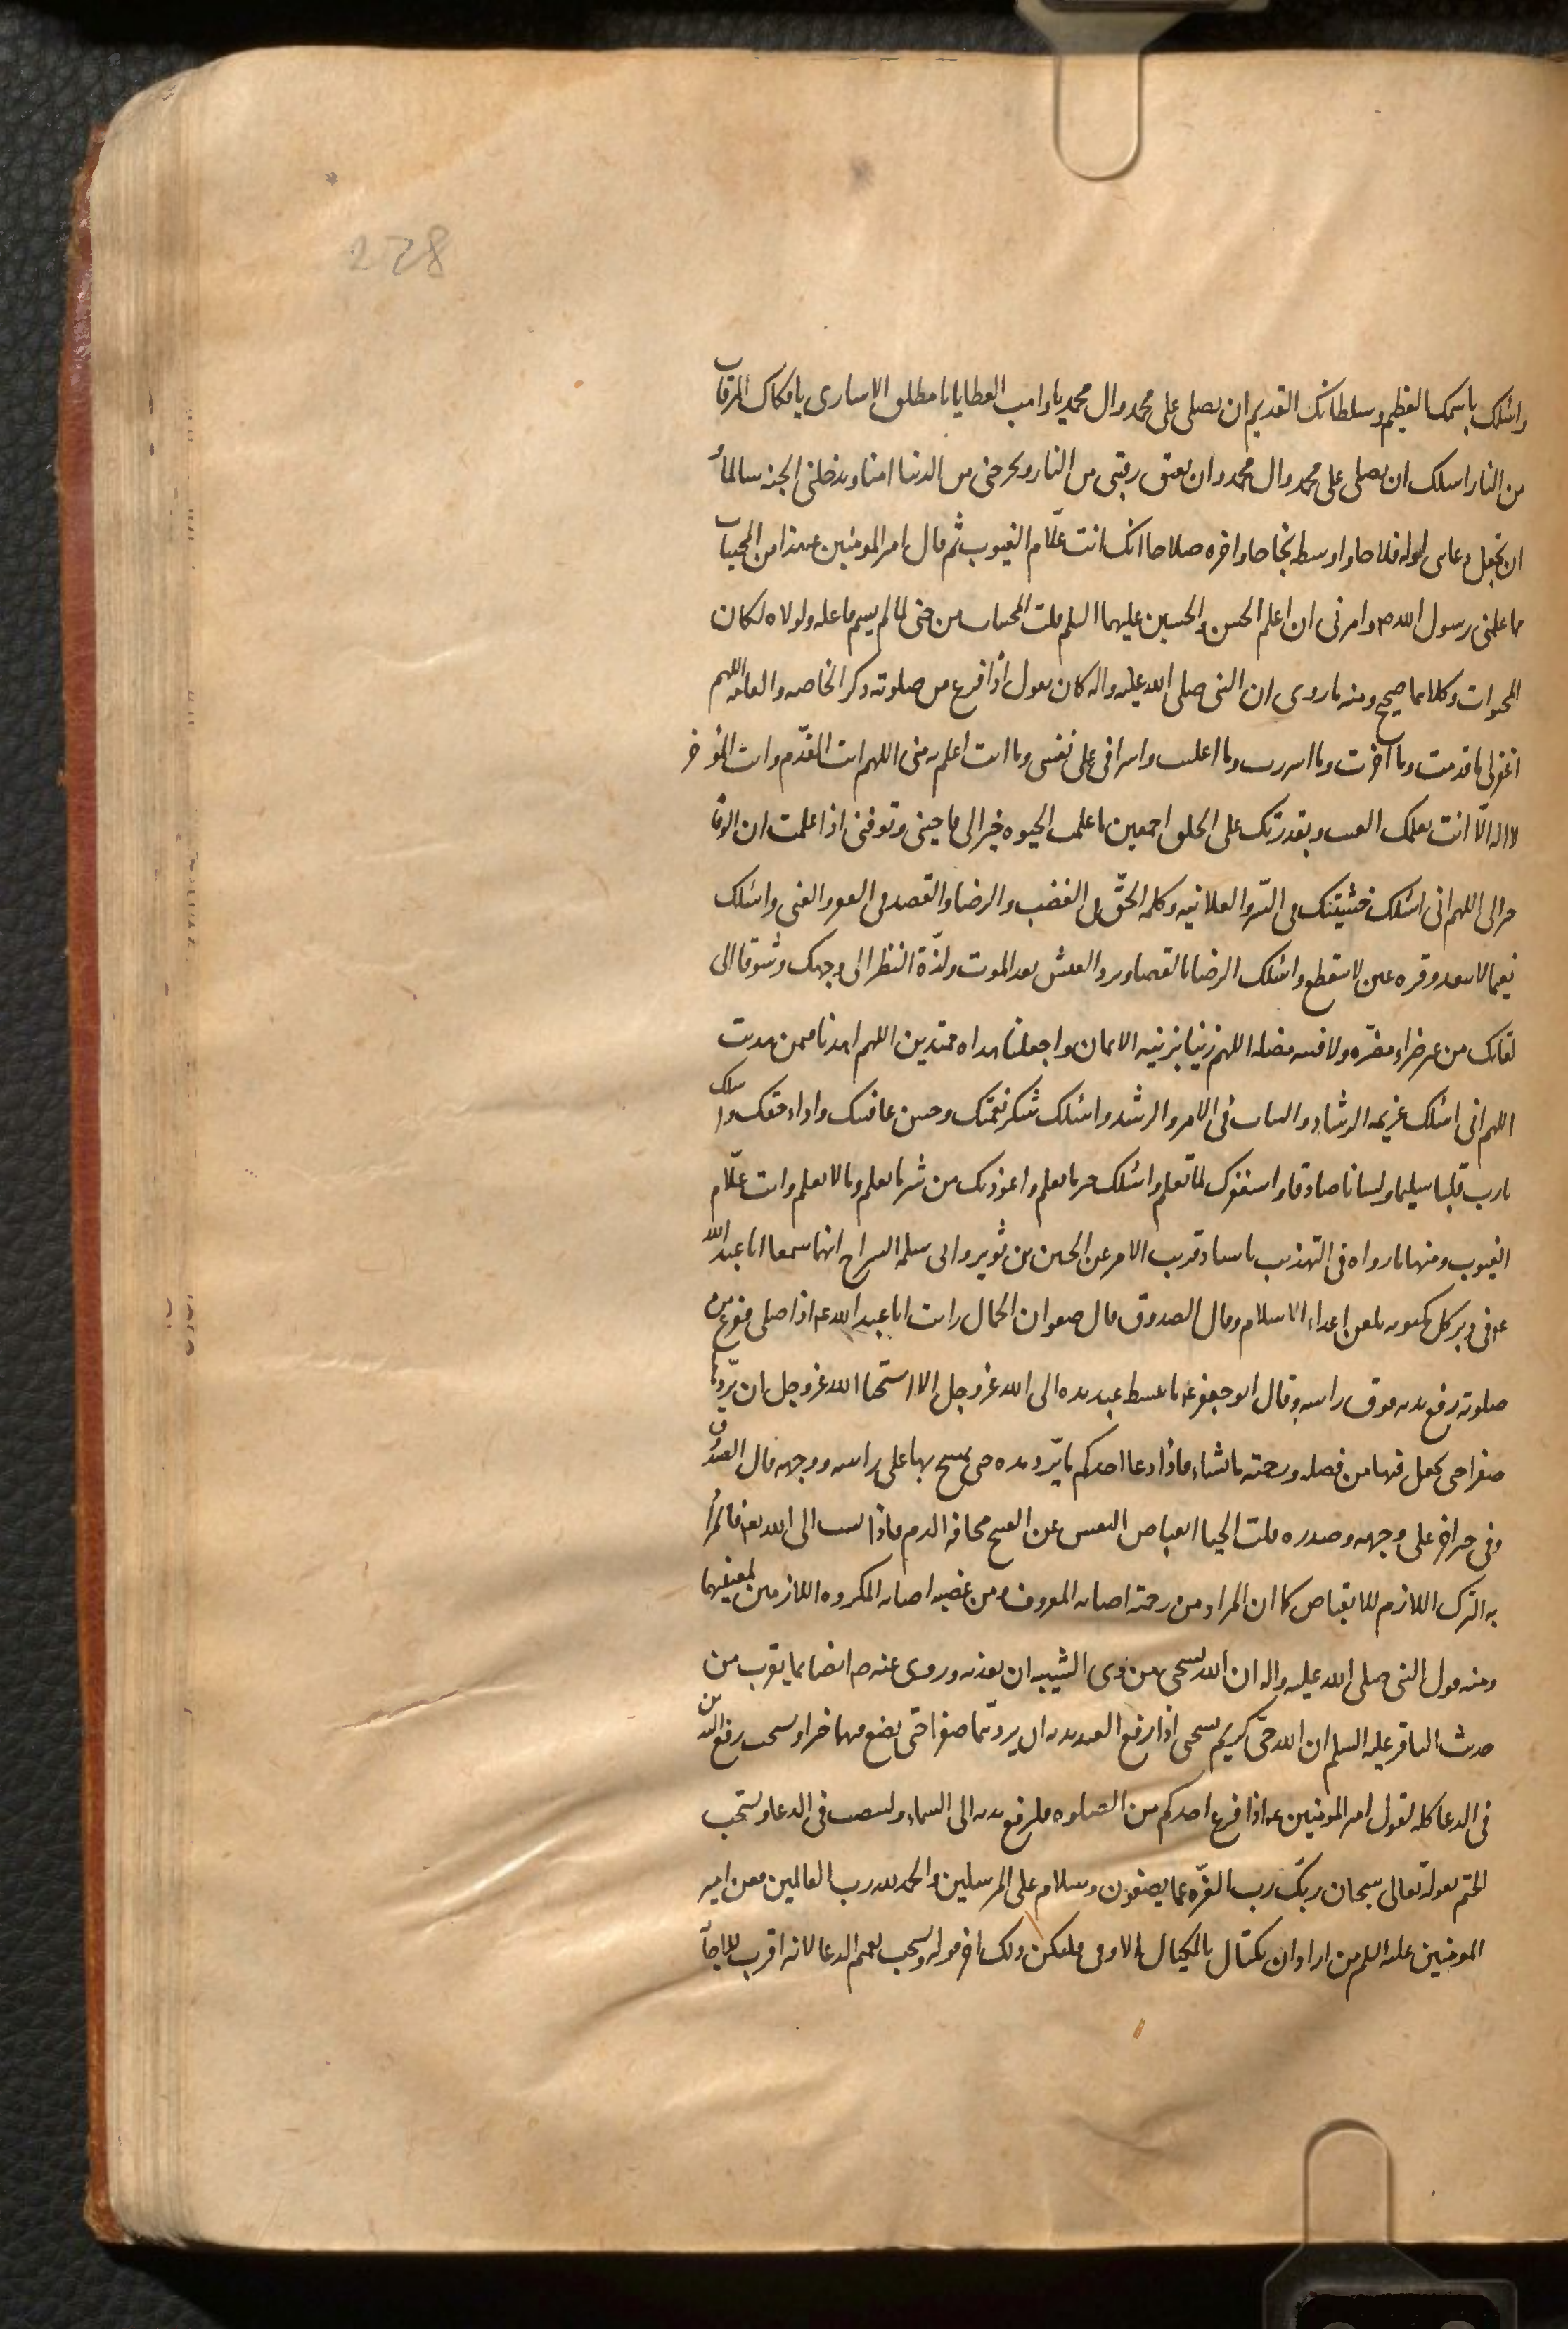 228
واسئلك باسمك العظيم وسلطانك القديم ان تصلى على محمد وال محمد يا واهب العطايا يا مطلق الاسارى يا فكاك الرقاب
من النار اسئلك ان تصلى على محمد وال محمد وان تعتق رقبتى من النار وتخرجنى من الدنيا امنا وتدخلنى الجنه سالما و
ان تجعل دعائى اوله فلاحا واوسطه نجاحا واخره صلاحا انك انت علّام الغيوب ثم قال امير المومنين ع هذا من المخبيات
مما علمنى رسول الله ص وامرنى ان اعلم الحسن والحسين عليهما السلم قلت المخبيات من خبى لما لم يسم فاعله ولولاه لكان
المخبوات وكلاهما صحيح ومنه ما روى ان النبى صلى الله عليه واله كان يقول اذا فرغ من صلوته ذكره الخاصه والعامه اللهم
اغفر لى ما قدمت وما اخرت وما اسررت وما اعلنت واسرافى على نفسى وما انت اعلم به منى اللهم انت المقدّم وانت المؤخر
لا اله الّا انت بعلمك الغيب وبقدرتك على الخلق اجمعين ما علمت الحيوه خيرا لى فاحينى وتوفنى اذا علمت ان الوفاة
خير الى اللهم انى اسئلك خشيتك فى السّر والعلانيه وكلمه الحقّ فى الغضب والرضا والقصد فى الفقر والغنى واسئلك
نعيما لا ينفد وقره عين لا ينقطع واسئلك الرضا بالقضا وبرد العيش بعد الموت ولذّة النظر الى وجهك وشوقا الى
لقائك من غير ضراء مضرّه ولا فتنه مضله اللهم زينا بزينه الايمان واجعلنا هداه مهتدين اللهم اهدنا فيمن هديت
اللهم انى اسئلك عزيمه الرشاد والثبات فى الامر والرشد واسئلك شكر نعمتك وحسن عافيتك واداء حقك واسئلك
يا رب قلبا سليما ولسانا صادقا واستغفرك لما تعلم واسئلك خير ما تعلم واعوذ بك من شر ما تعلم وما لا نعلم وانت علّام
الغيوب ومنها ما رواه فى التهذيب باسناد قريب الامر عن الحسين بن ثوير وابى سلمه السراج انهما سمعا ابا عبد الله
ع فى دبر كل مكتوبه يلعن اعداء الاسلام وقال الصدوق قال صفوان الجمال رايت ابا عبد الله ع اذا صلى ففرغ من
صلوته رفع يديه فوق راسه وقال ابو جعفر ع ما بسط عبد يده الى الله عز وجل الا استحيا الله عز وجل ان يردّها
صفرا حتى يجعل فيها من فضله ورحمته ما يشاء فاذا دعا احدكم فلا يردّ يده حتى يمسح بها على راسه ووجهه قال الصدوق
وفى خبر اخر على وجهه وصدره قلت الحيا انقباض النفس عن القبيح مخافه الذم فاذا نسب الى الله تع فالمراد
به الترك اللازم للانقباض كما ان المراد من رحمته اصابه المعروف ومن غضبه اصابه المكروه اللازمين لمعنييهما
ومنه قول النبى صلى الله عليه واله ان الله يستحى من ذى الشيبه ان يعذبه وروى عنه ص ايضا ما يقرب من
حديث الباقر عليه السلم ان الله حىّ كريم يستحى اذا رفع العبد يديه ان يردّهما صفرا حتى يضع فيهما خيرا ويستحب رفع اليدين
فى الدعا كله لقول امير المومنين ع اذا فرغ احدكم من الصلوه فليرفع يديه الى السماء ولينصب فى الدعا ويستحب
الختم بقوله تعالى سبحان ربّك رب العزّه عما يصفون وسلام على المرسلين والحمد لله رب العالمين فعن امير
المومنين عليه السلم من اراد ان يكتال بالمكيال الاوفى فليكن ذلك اخر قوله ويستحب تعميم الدعا لانه اقرب للاجابة